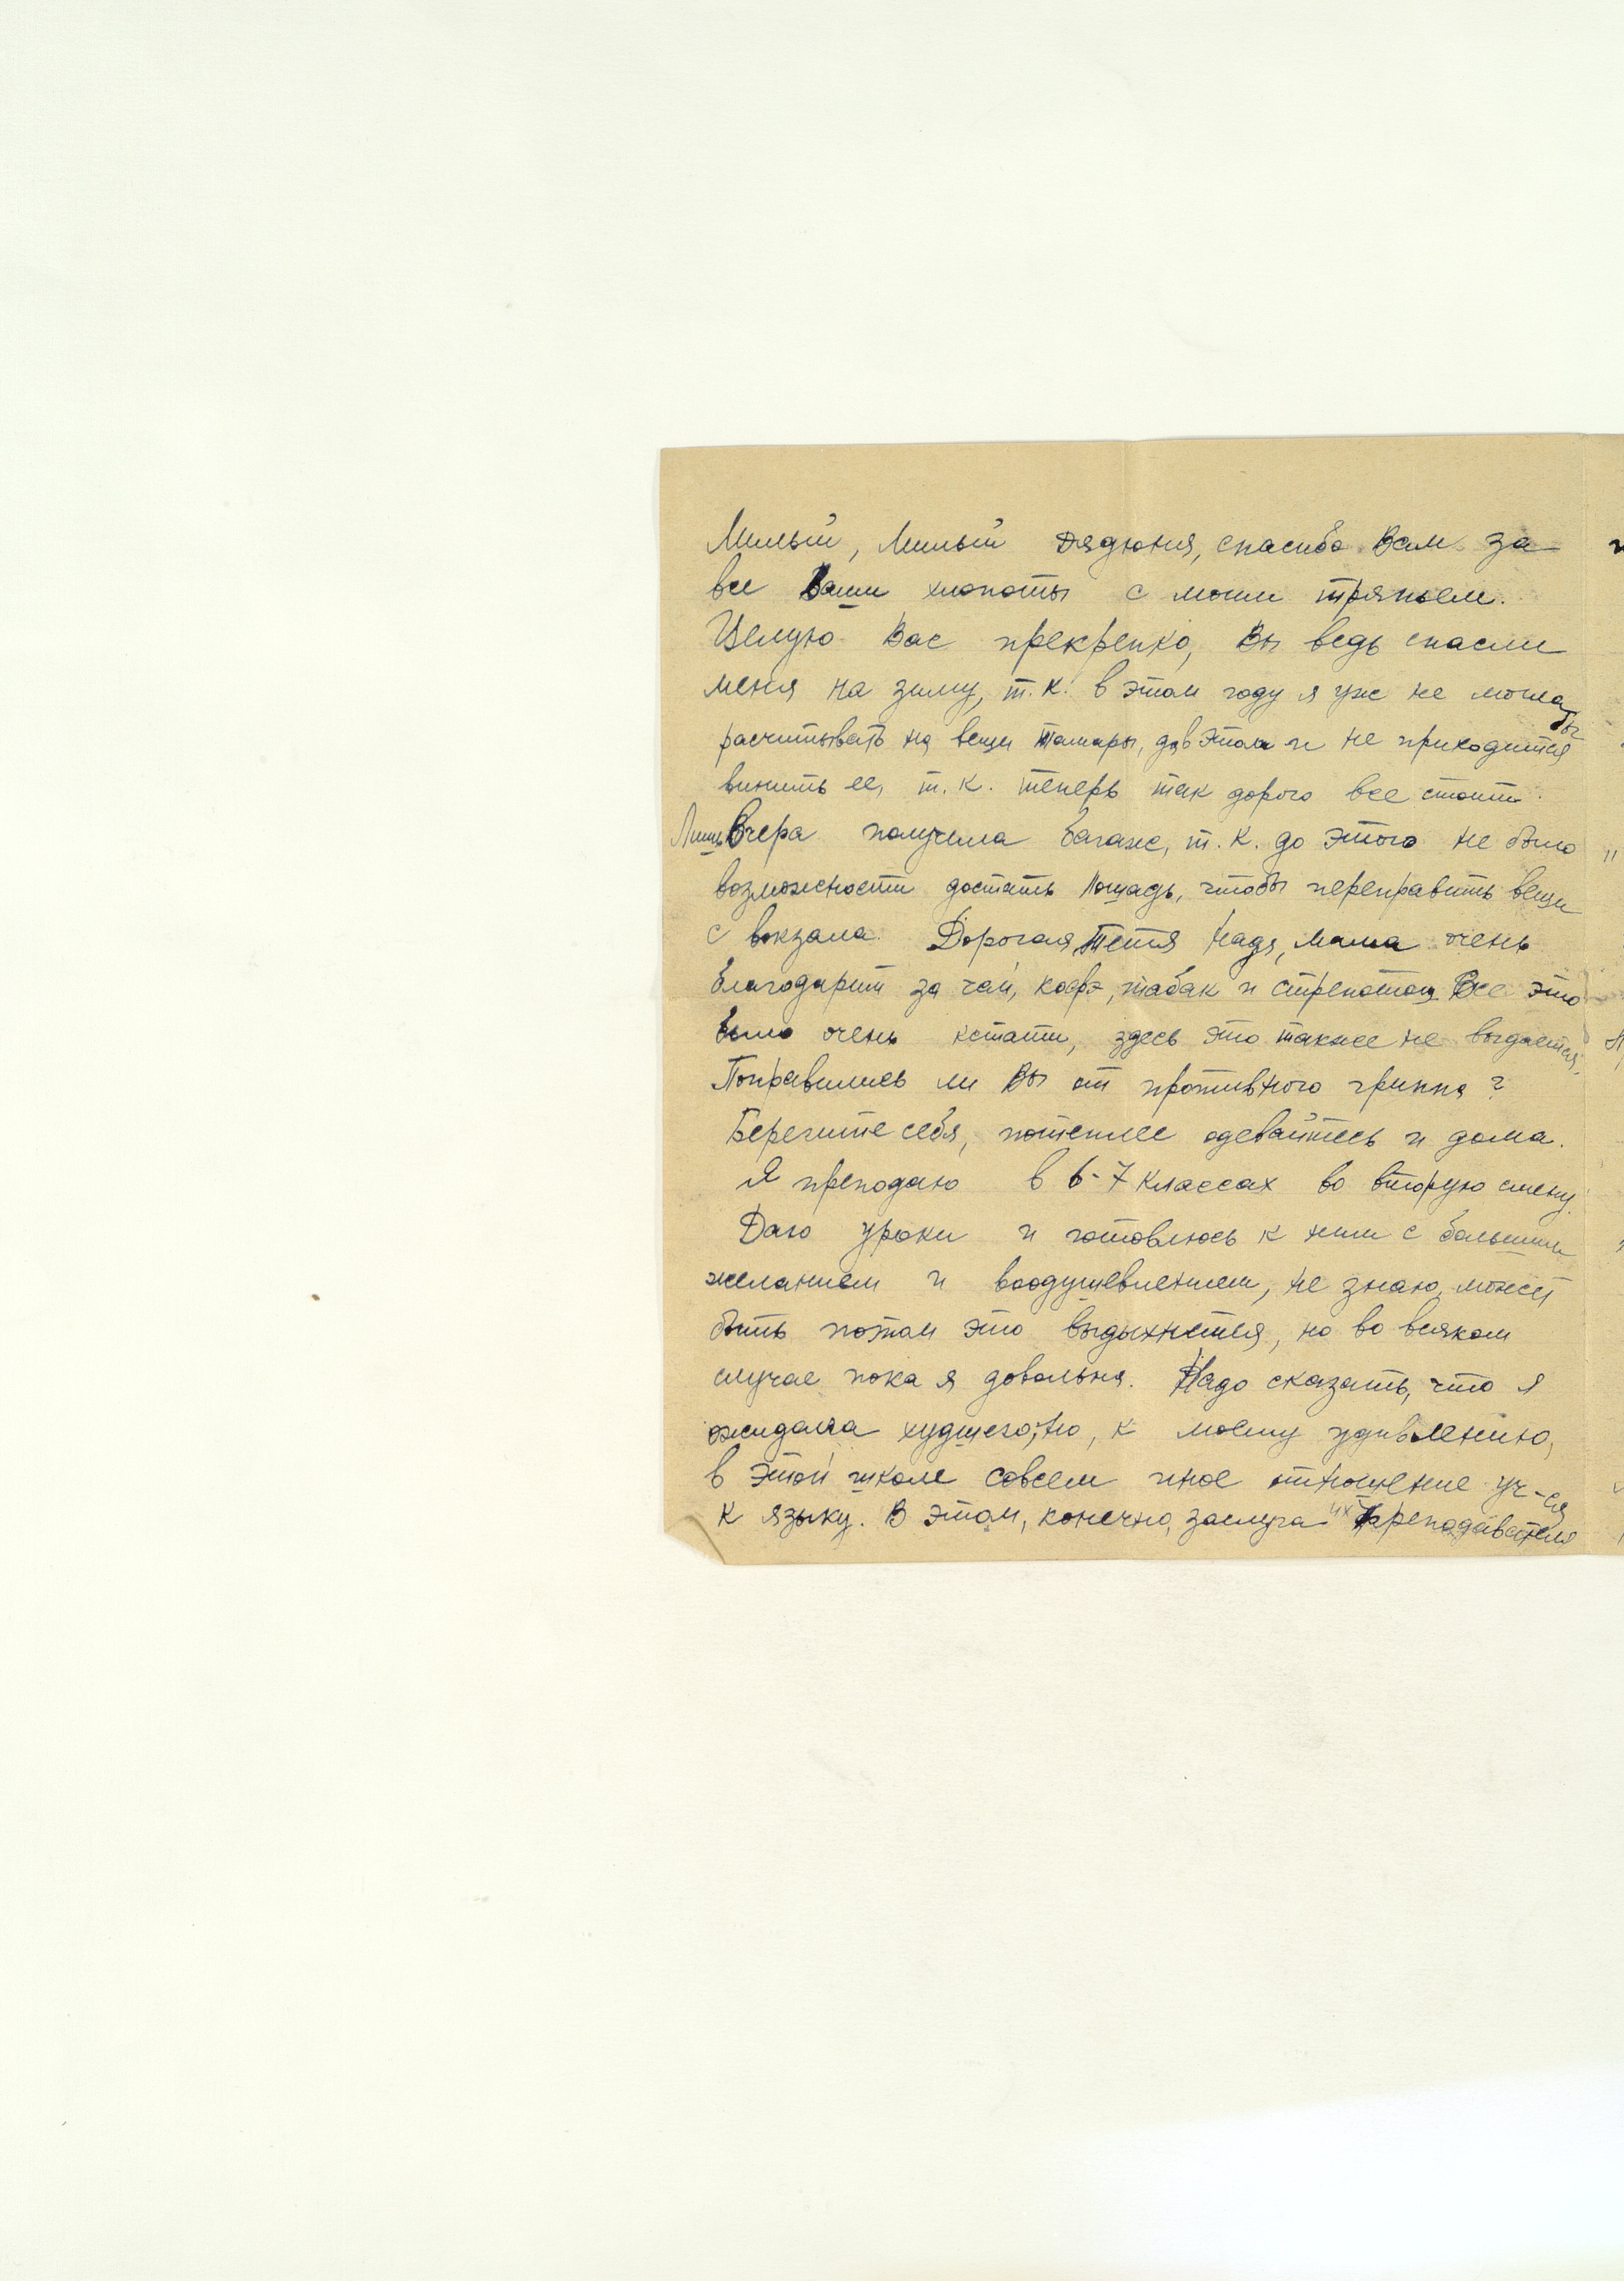 Милый, милый дядюня, спасибо Вам за
все Ваши хлопоты с моим тряпьем.
Целую Вас прекрепко, Вы ведь спасли
меня на зиму, т.к. в этом году я уж не могла бы
расчитывать на вещи Тамары, да в этом и не приходится
винить ее, т.к. теперь так дорого все стоит.
Лишь вчера получила багаж, т.к. до этого не было
возможности достать лошадь, чтобы переправить вещи
с вокзала. Дорогая тетя Надя, мама очень
благодарит за чай, кофэ, табак и стрептоц. Все это
было очень кстати, здесь это также не выдается.
Поправились ли Вы от противного гриппа?
Берегите себя, потеплее одевайтесь и дома.
Я преподаю в 6-7 классах во вторую смену.
Даю уроки и готовлюсь к ним с большим
желанием и воодушевлением, не знаю, может
быть потом это выдыхнется, но во всяком
случае пока я довольна. Надо сказать, что я
ожидала худшего, но, к моему удивлению,
в этой школе совсем иное отношение уч-ся
к языку. В этом, конечно, заслуга их преподавателя